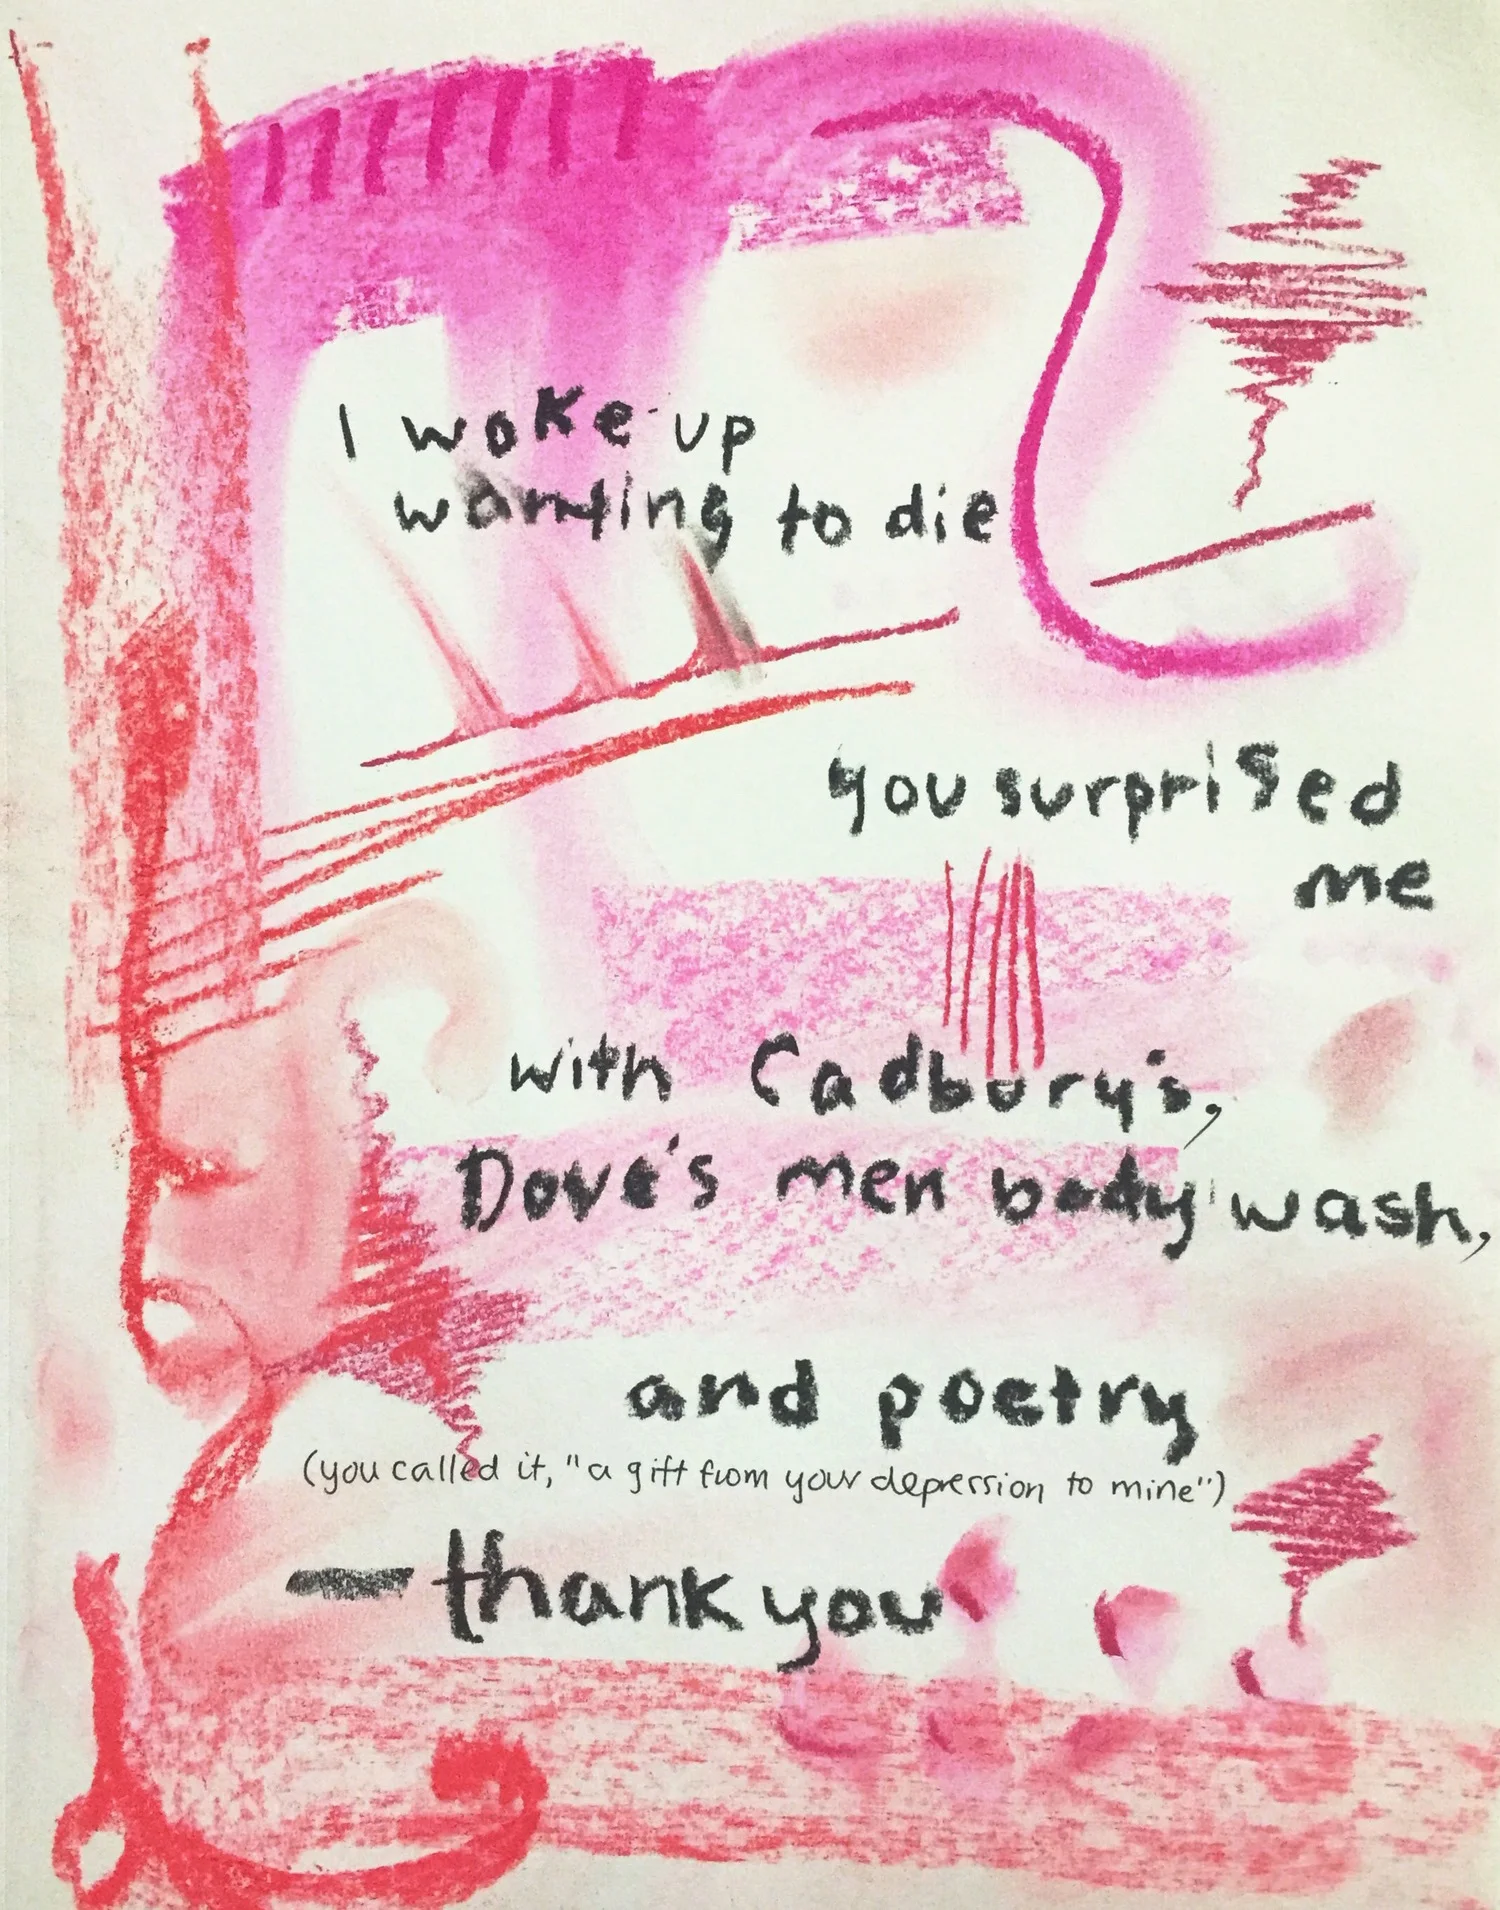 I woke up
wanting to die
you surprised
me
with Cadbury's,
Dove's men body wash,
and poetry
(you called it, "a gift from your depression to mine")
— thank you